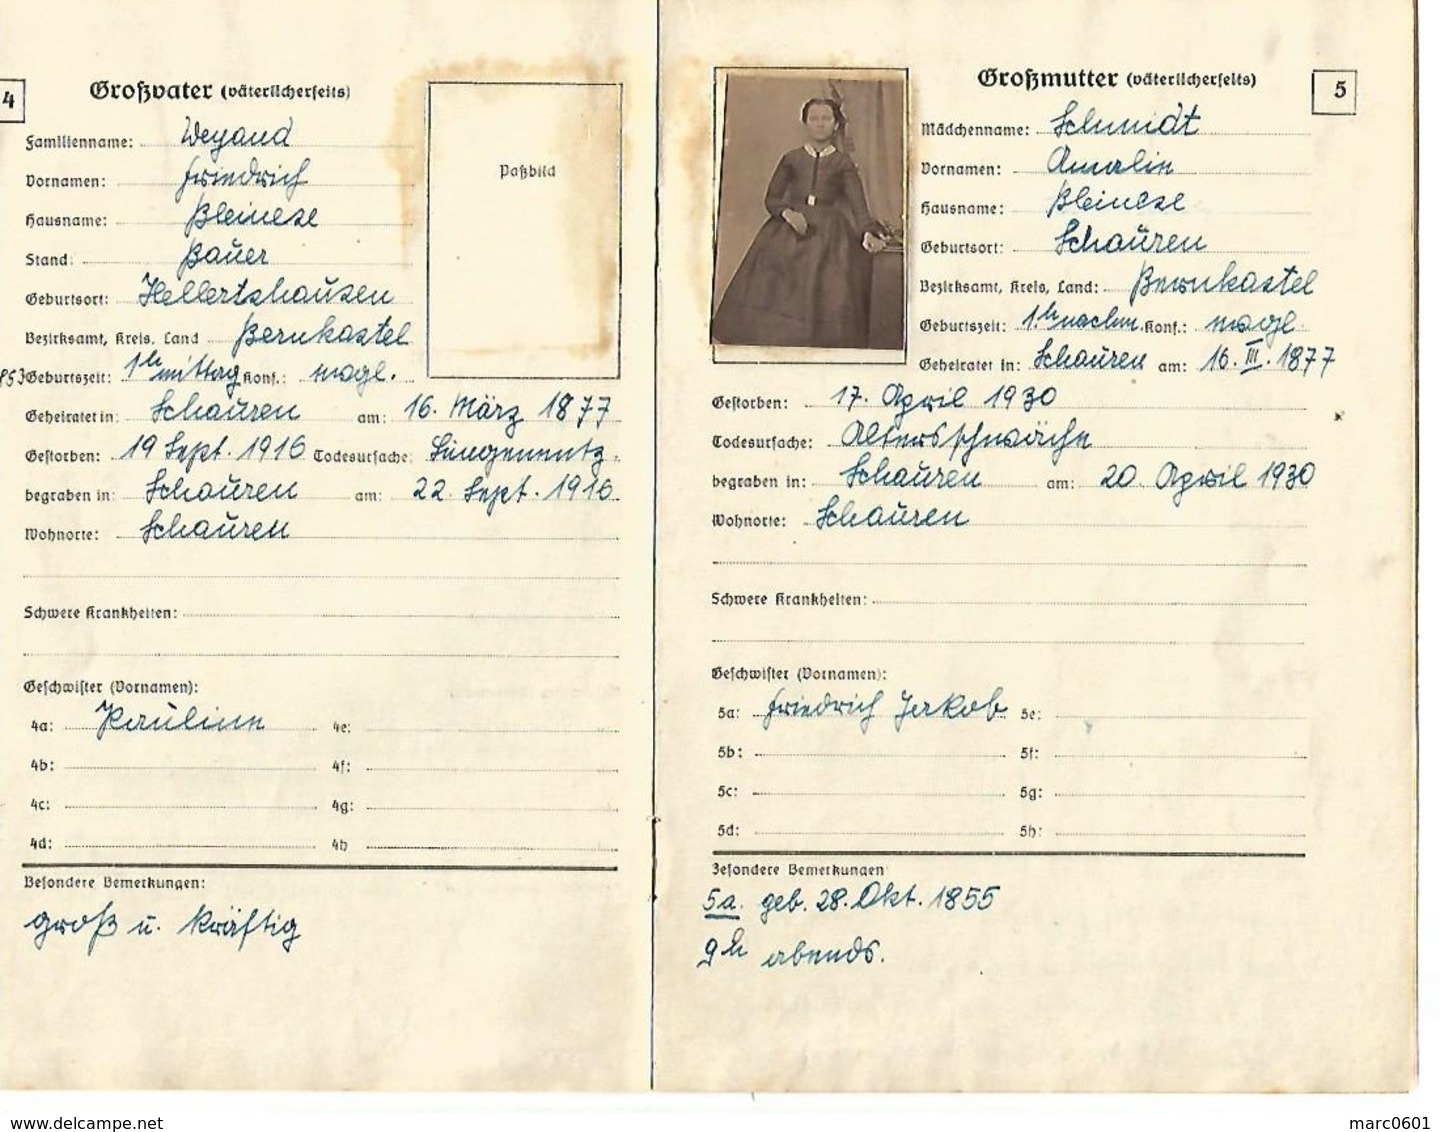 4
Großvater (väterlicherseits)
Familienname: Weyand
Vornamen: Friedrich
Hausname: Bleinese
Stand: Bauer
Geburtsort: Hellertshausen
Bezirksamt, Kreis, Land Bernkastel
853 Geburtszeit: 1 Uhr mittag Konf.: evagl.
Geheiratet in: Schauren am: 16. März 1877
Gestorben: 19 Sept. 1916 Todesursache: Lungenentz.
begraben in: Schauren am: 22. Sept. 1916
Wohnorte: Schauren
Schwere Krankheiten:
Geschwister (Vornamen):
4a: Pauline 4e:
4b: 4f:
4c: 4g:
4d: 4h
Besondere Bemerkungen:
groß u. kräftig
Paßbild
5
Großmutter (väterlicherseits)
Mädchenname: Schmidt
Vornamen: Amalie
Hausname: Bleinese
Geburtsort: Schauren
Bezirksamt, Kreis, Land: Bernkastel
Geburtszeit: 1 Uhr nachm. Konf.: evagl.
Geheiratet in: Schauren am: 16. III. 1877
Gestorben: 17. April 1930
Todesursache: Altersschwäche
begraben in: Schauren am: 20. April 1930
Wohnorte: Schauren
Schwere Krankheiten:
Geschwister (Vornamen):
5a: Friedrich Jakob 5e:
5b: 5f:
5c: 5g:
5d: 5h:
Besondere Bemerkungen
5a. geb. 28. Okt. 1855
9 h abends.
www.delcampe.net
marc0601